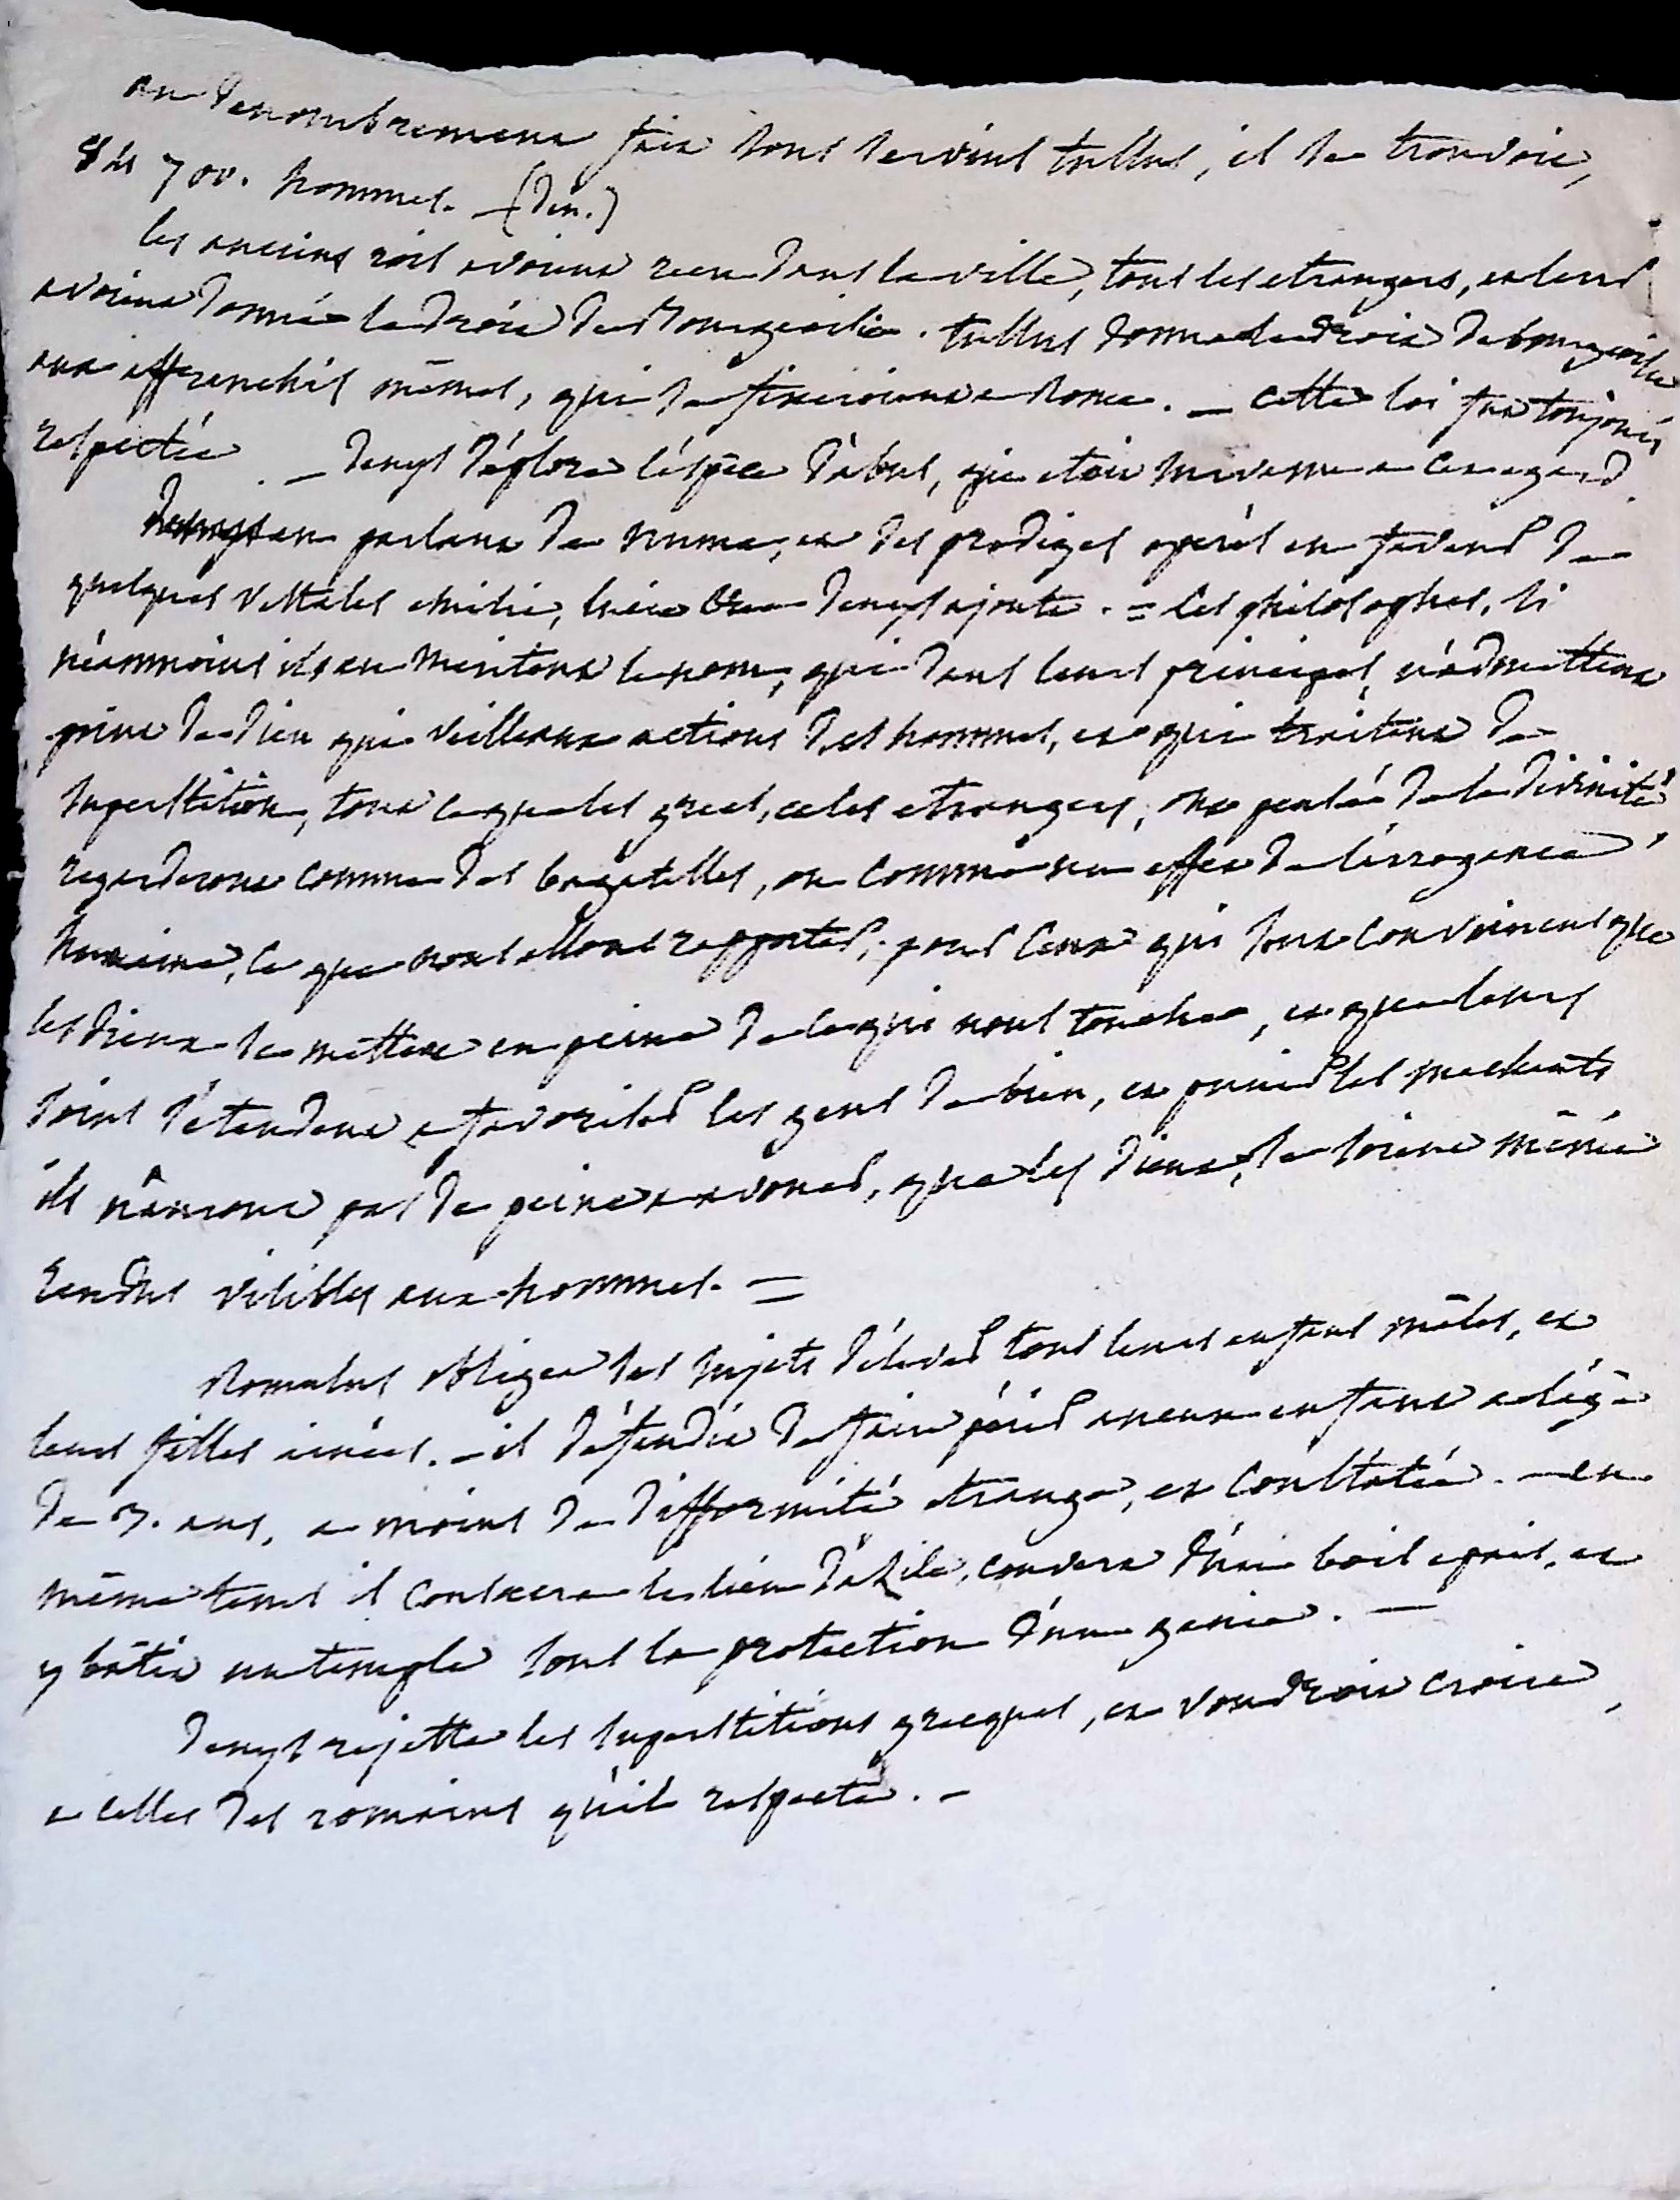 au denombrement fait sous servius tullus, il se trouvoit,
84 700. hommes. — (den.)
les anciens rois avoient recu dans la ville, tous les etrangers, et leur
avoient donné le droit de Bourgeoisie. tullus donna le droit de bourgeoisie
aux affranchis mêmes, qui se fixeroient a Rome. — cette loi fut toujours
respectée. — denys déplore l'éspèce d'abus, qui etoit survenu a cet egard.
denys en parlant de numa, et des prodiges operés en faveur de
quelques vestales denys ajoute. = les philosophes, si
néammoins ils en meritent le nom, qui dans leurs principes, n'admettent
point de dieu qui veille aux actions des hommes, et qui traitent de
superstition, tout ce que les grecs, et les etrangers, ont pensé de la divinité,
regarderont comme des bagatelles, ou comme un effet de l'arrogance
humaine, ce que nous allons rapporter; pour ceux qui sont convaincus que
les dieux se mettent en peine de ce qui nous touche, et que leurs
soins s'etendent a favoriser les gens de bien, et punir les mechants,
ils n'auront pas de peine a avouer, que les dieux, se soient même
rendus visibles aux hommes. =
Romulus obligea ses sujets d'elever tous leurs enfans mâles, et
leurs filles ainées. — il défendit de faire périr aucun enfant a l'age
de 3. ans, a moins de difformité etrange, et constatée. — en
même tems il consacra le lieu d'asile, couvert d'un bois epais, et
y bâtit un temple sous la protection d'un genie. —
denys rejette les superstitions grecques, et voudroit croire,
a celles des romains qu'il respecte. —